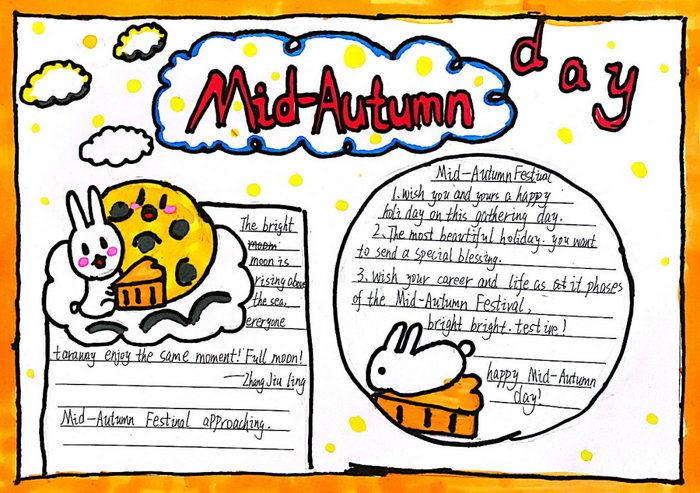 Mid-Autumn day
The bright
moon is
rising above
the sea.
ereryone
taraway enjoy the same moment! Full moon!
—Zhang Jiu ling
Mid-Autumn Festival approaching.
Mid-Autumn Festival
1. wish you and yours a happy
holi day on this gathering day.
2. The most beautiful holiday. you want
to send a special blessing.
3. wish your career and life as it phases
of the Mid-Autumn Festival,
bright bright. testive!
happy Mid-Autumn
day!